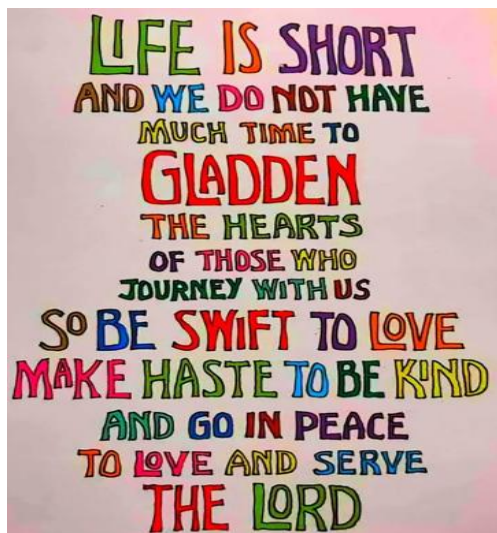 LIFE IS SHORT
AND WE DO NOT HAVE
MUCH TIME TO
GLADDEN
THE HEARTS
OF THOSE WHO
JOURNEY WITH US
SO BE SWIFT TO LOVE
MAKE HASTE TO BE KIND
AND GO IN PEACE
TO LOVE AND SERVE
THE LORD